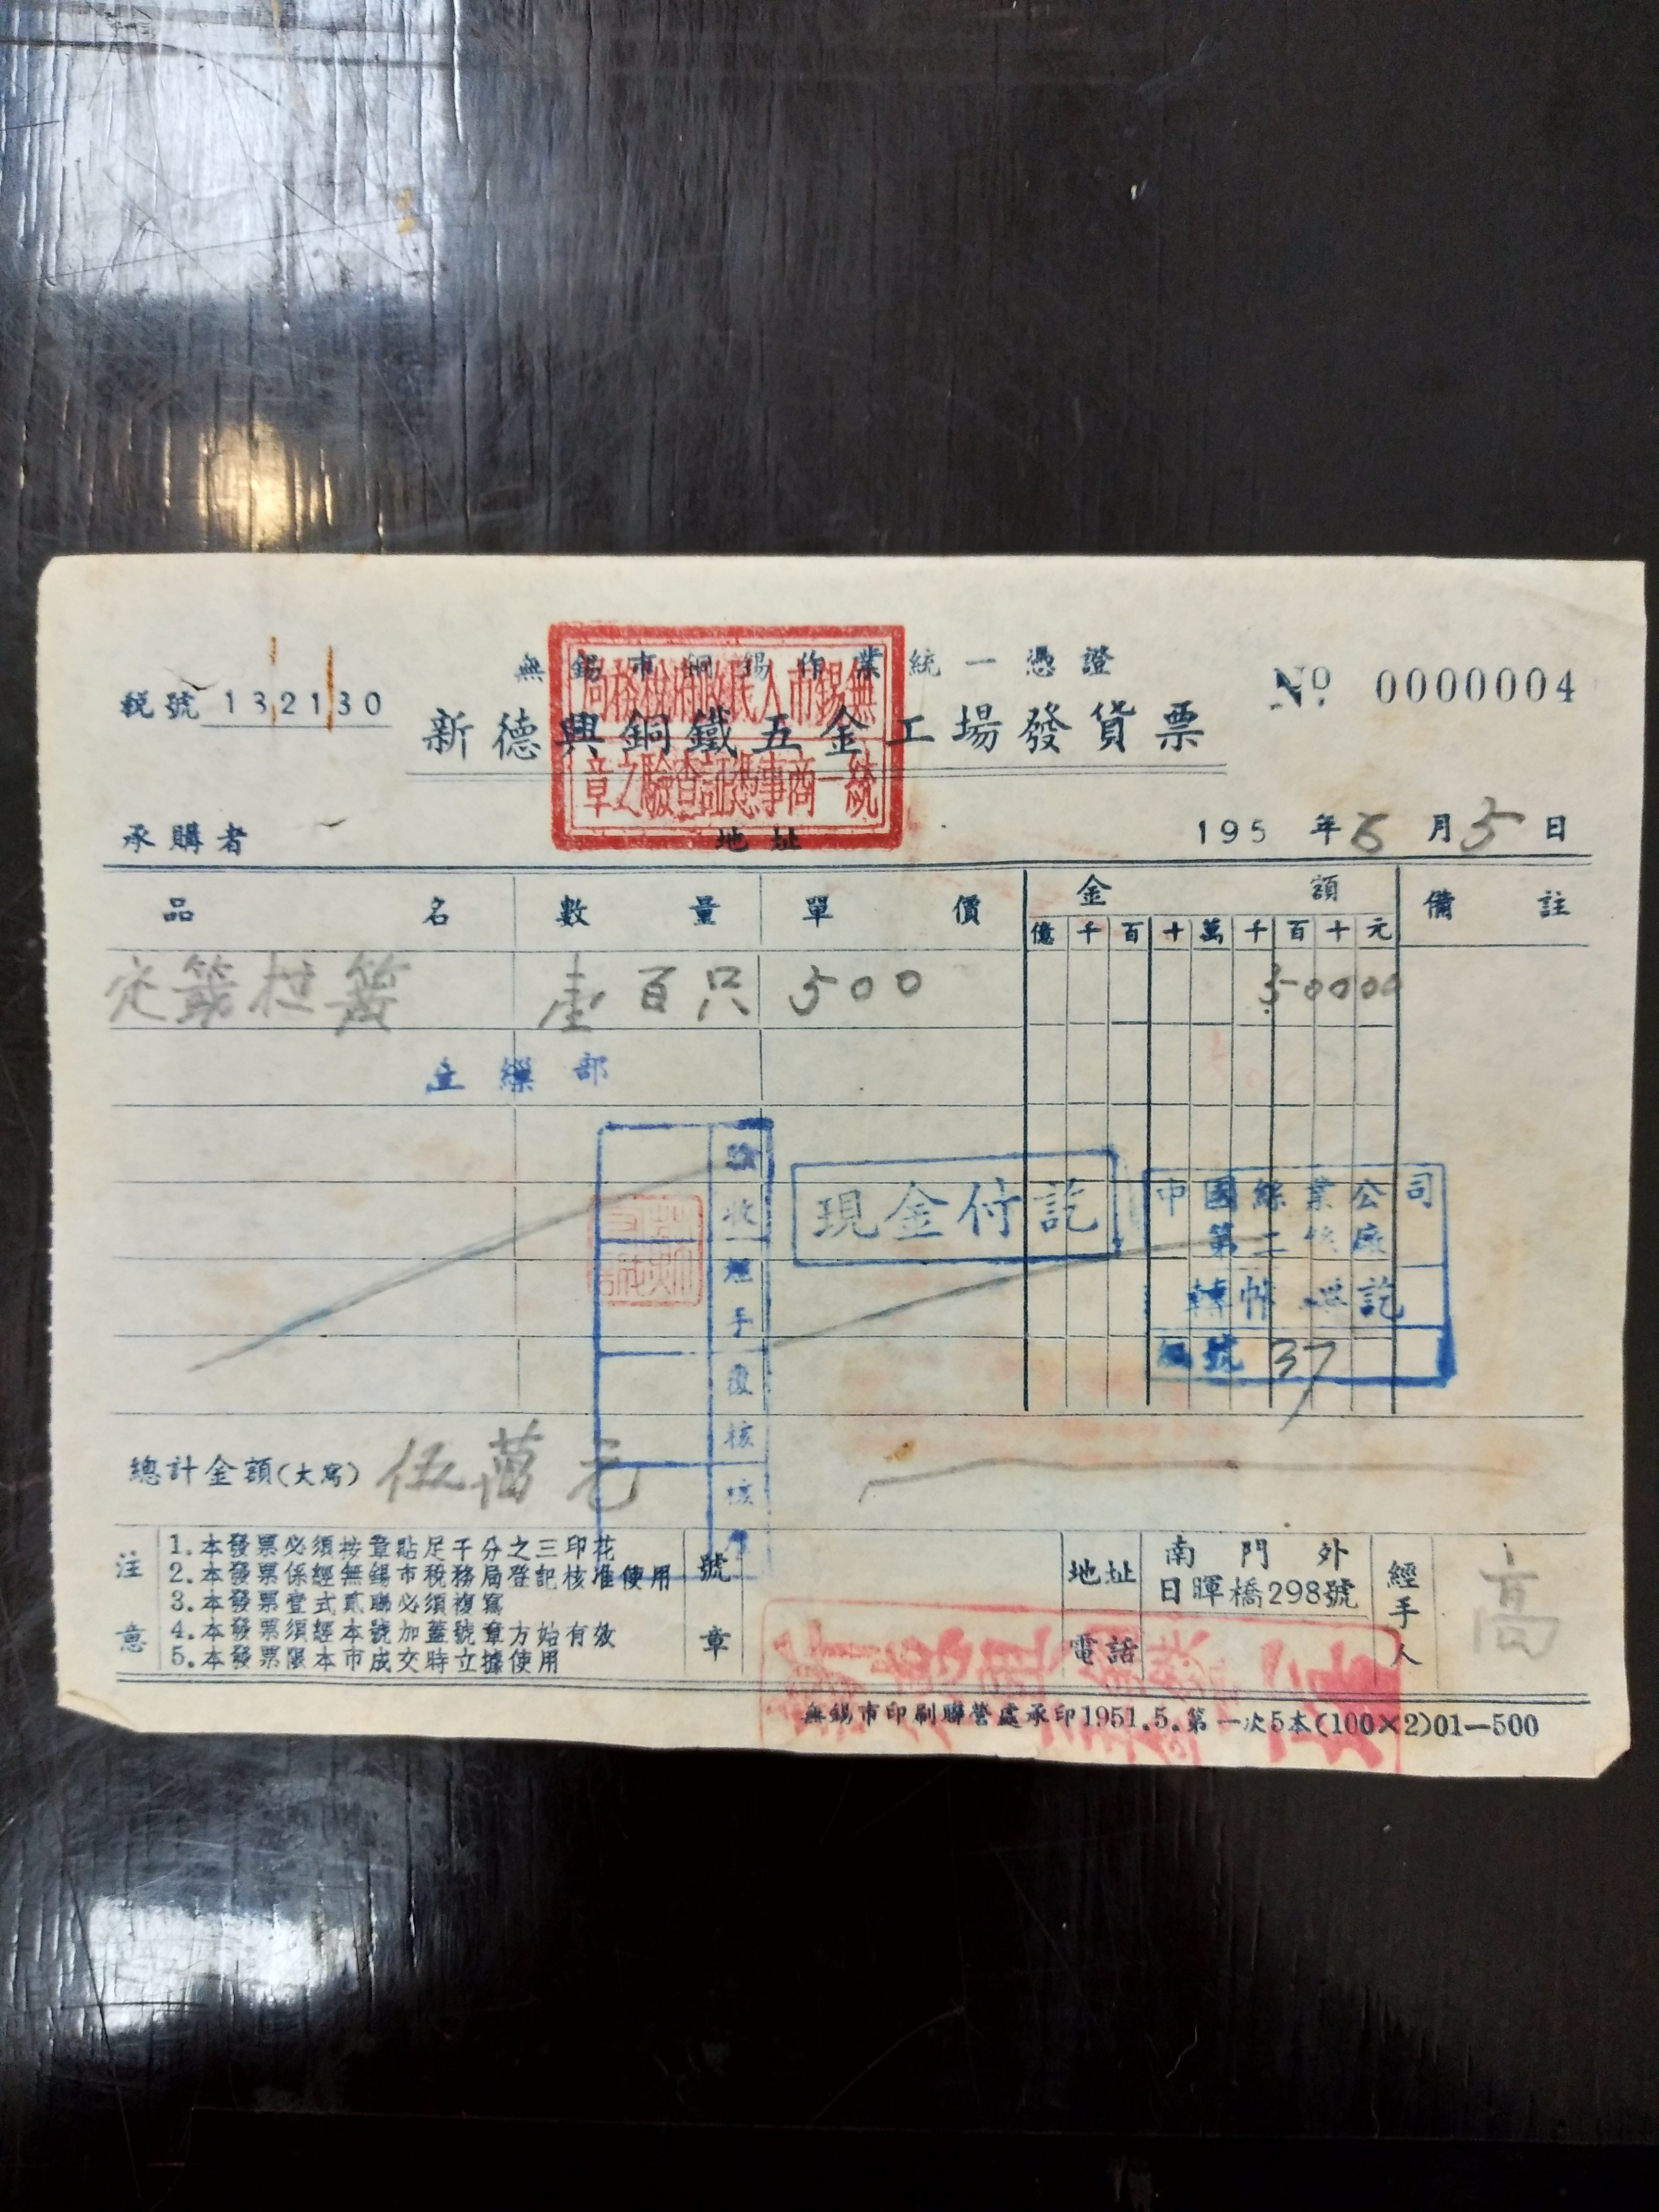 無錫市銅錫作業統一憑證
稅號 132130
新德興銅鐵五金工場發貨票
№ 0000004
無錫市人民政府稅務局
統一商事憑証查驗之章
承購者
地址
195 年 6 月 5 日
品名 數量 單價 金額 備註
億 千 百 十 萬 千 百 十 元
壹百只 500 50000
立繅部
驗收
經手
覆核
核
現金付訖
中國絲業公司
第二絲廠
轉帳 訖
編號 37
總計金額(大寫) 伍萬元
注意
1.本發票必須按章貼足千分之三印花
2.本發票係經無錫市稅務局登記核准使用
3.本發票壹式貳聯必須複寫
4.本發票須經本號加蓋號章方始有效
5.本發票限本市成交時立據使用
號章
地址 南門外
日暉橋298號
電話
經手人 高
無錫市印刷聯營處承印1951.5.第一次5本(100×2)01—500